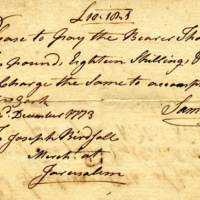 £10.18.3
ease to pay the Bearer Tho
Pound, Eighteen Shilling,
Charge the Same to accomp
York
December 1773
To Joseph Birdsall
Mercht. at
Jerusalem
Sam